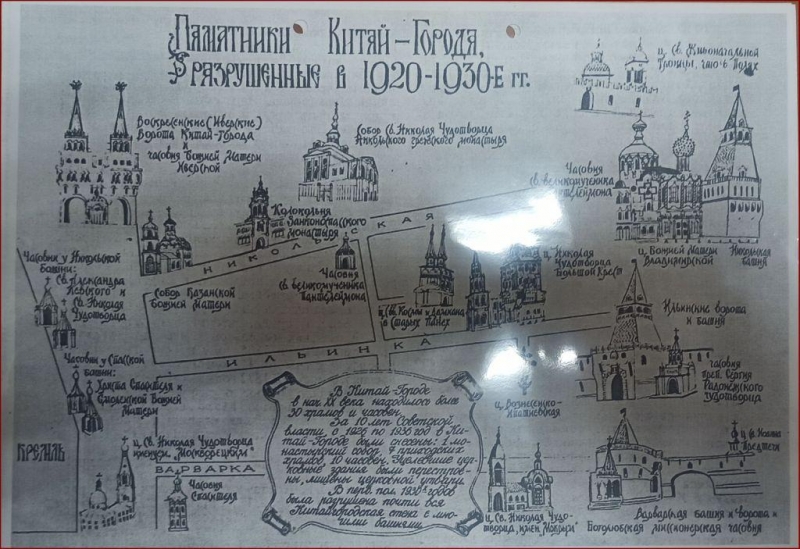 Памятники Китай-Города,
разрушенные в 1920-1930-е гг.
ц. Св. Живоначальной
Троицы, что в Полях
Воскресенские (Иверские)
Ворота Китай-Города
и
часовня Божией Матери
Иверской
Собор Св. Николая Чудотворца
Никольского греческого монастыря
Часовня
св. великомученика
Пантелеймона
Колокольня
Заиконоспасского
монастыря
НИКОЛЬСКАЯ
Часовни у Никольской
башни:
Св. Александра
Невского и
Св. Николая
Чудотворца
Собор Казанской
Божией Матери
Часовня
св. великомученика
Пантелеймона
ц. Св. Космы и Дамиана
в Старых Панех
ц. Николая
Чудотворца
Большой Крест
ц. Божией Матери
Владимирской
Никольская
башня
Ильинские ворота
и башня
ИЛЬИНКА
Часовни у Спасской
башни:
Христа Спасителя и
Смоленской Божией
Матери
часовня
преп. Сергия
Радонежского
чудотворца
ц. Вознесенско-
КРЕМЛЬ
ц. Св. Николая Чудотворца
"Москворецкий"
ВАРВАРКА
Часовня
Спасителя
В Китай-Городе
в нач. XX века находилось более
30 храмов и часовен.
За 10 лет Советской
власти, с 1925 по 1935 год в Ки-
тай-Городе были снесены: 1 мо-
настырский собор, 9 приходских
храмов, 10 часовен. Уцелевшие цер-
ковные здания были перестрое-
ны, лишены церковной утвари.
В перв. пол. 1930-годов
была разрушена почти вся
Китайгородская стена с мно-
гими башнями.
ц. Св. Николая Чудо-
творца, имен. "Мокрый"
ц. Св. Иоанна
Предтечи
Варварская башня и ворота и
Боголюбская миссионерская часовня